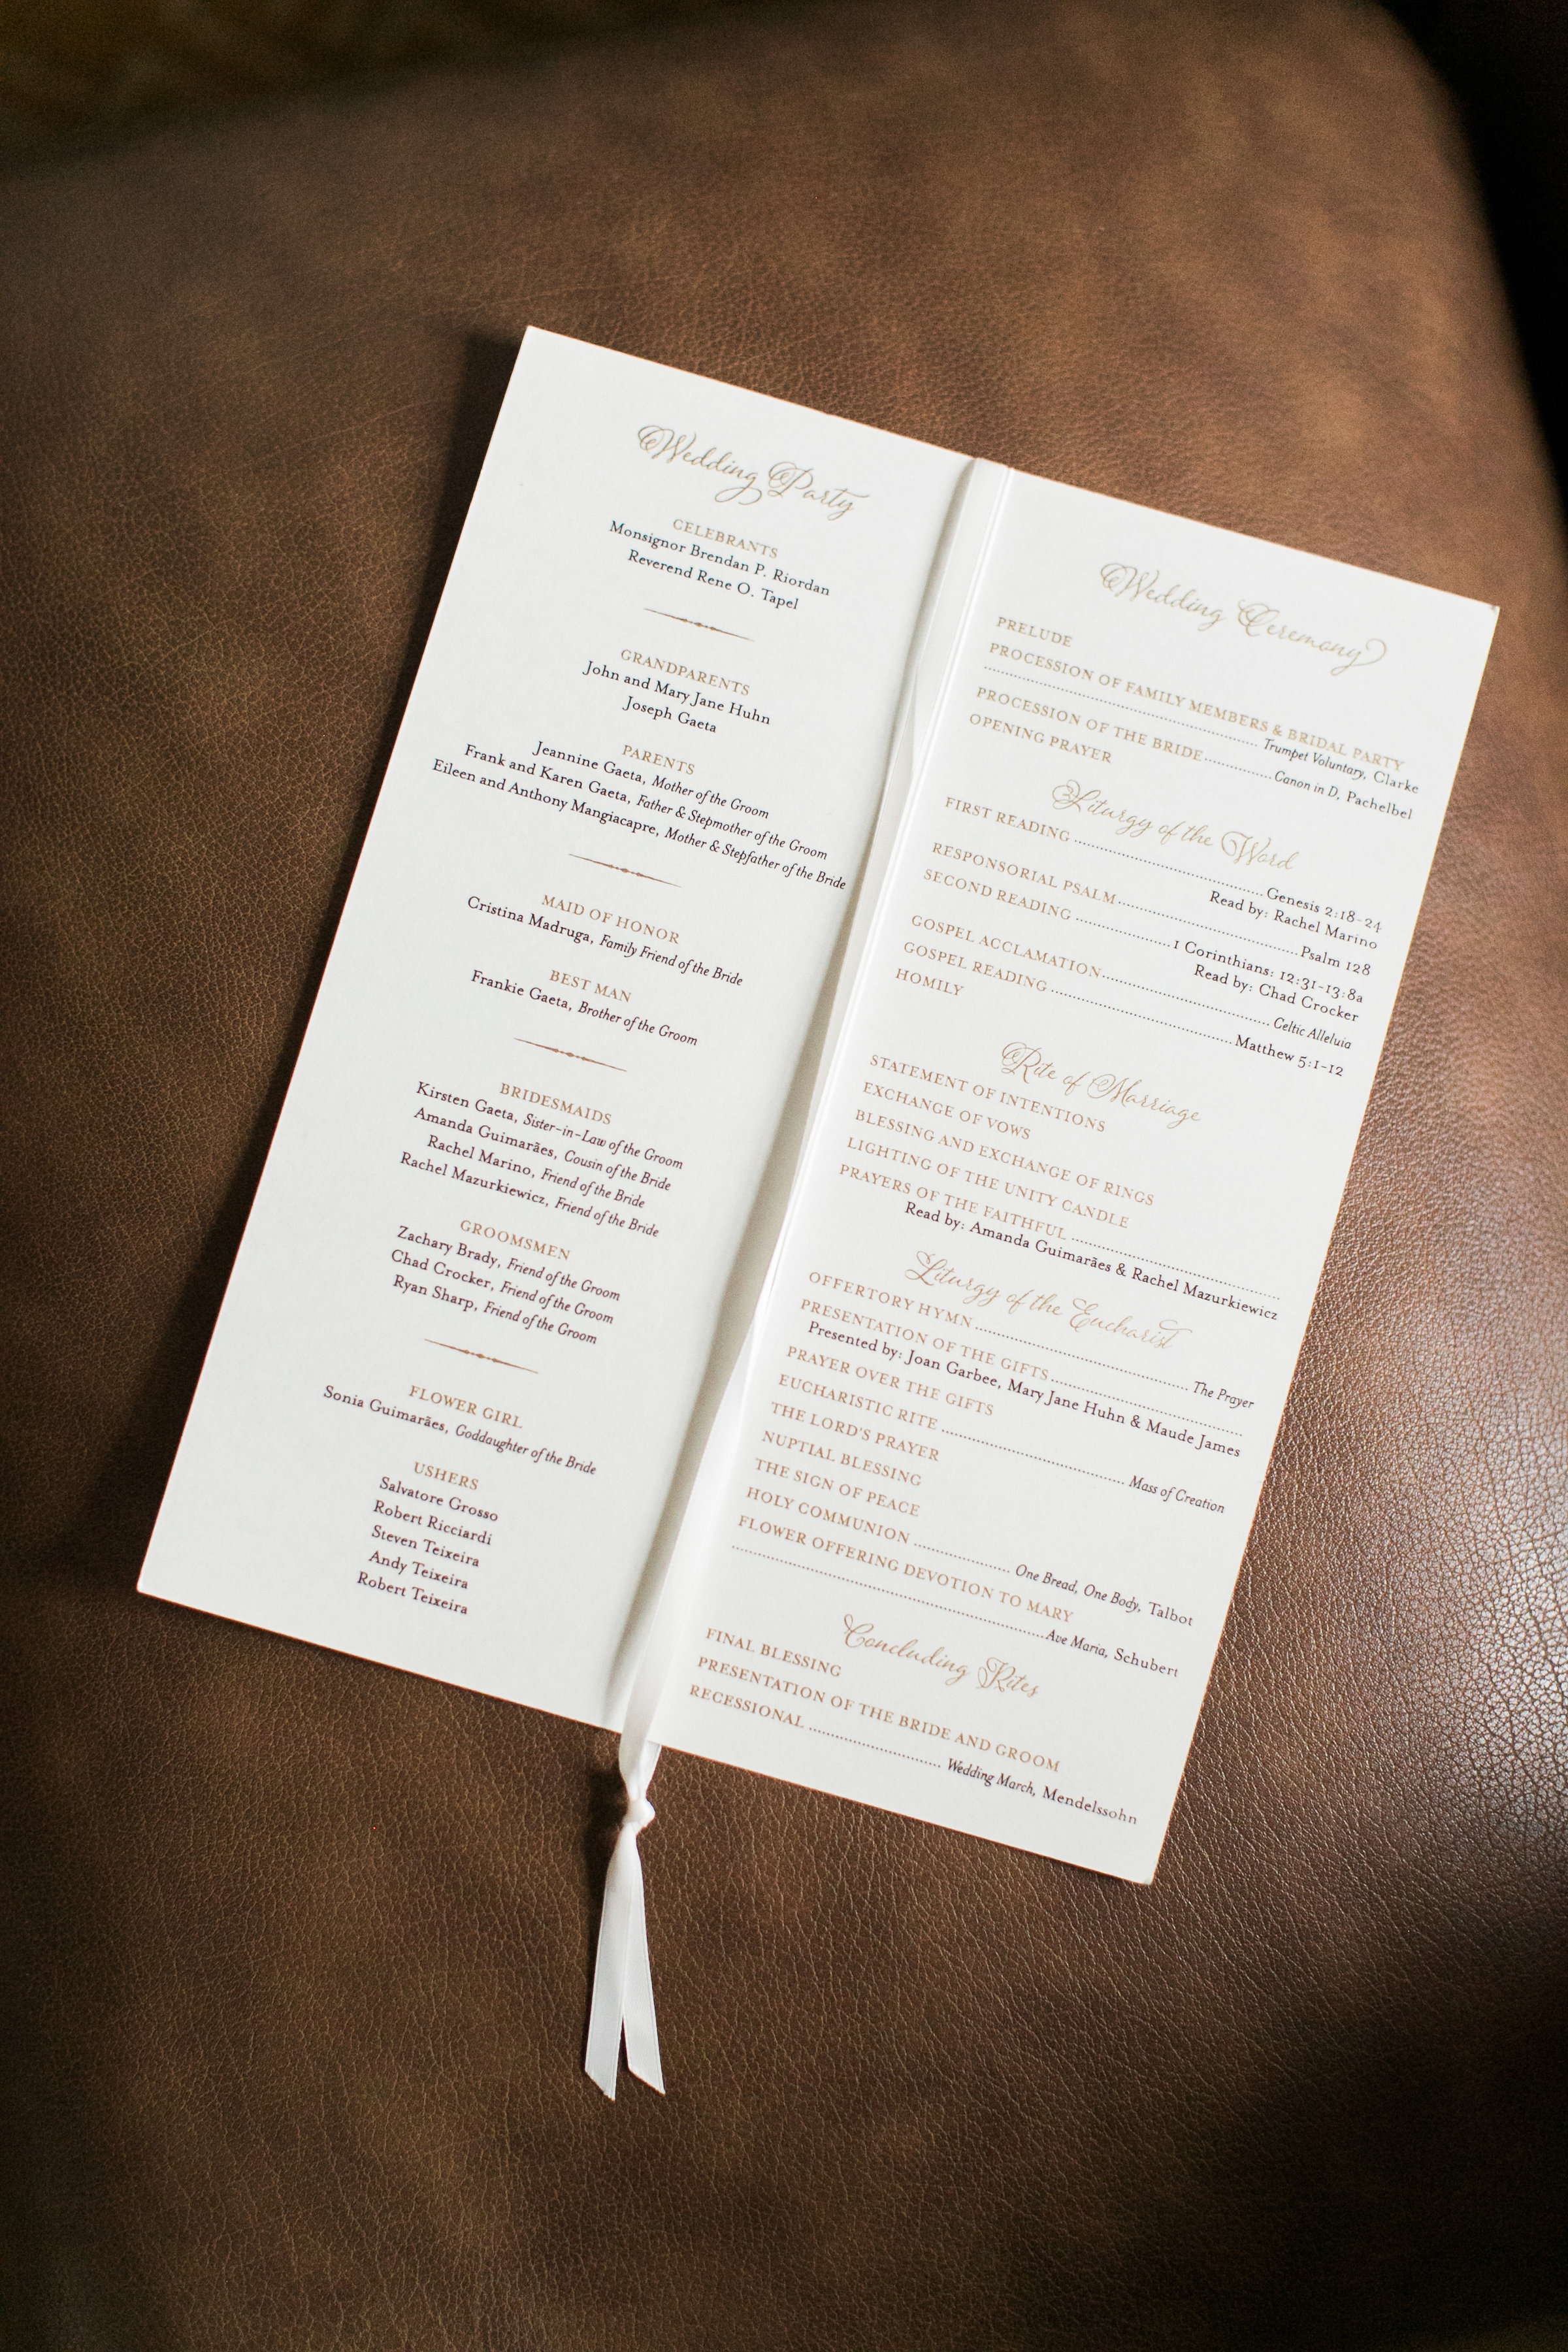 Wedding Party
CELEBRANTS
Monsignor Brendan P. Riordan
Reverend Rene O. Tapel
GRANDPARENTS
John and Mary Jane Huhn
Joseph Gaeta
PARENTS
Jeannine Gaeta, Mother of the Groom
Frank and Karen Gaeta, Father & Stepmother of the Groom
Eileen and Anthony Mangiacapre, Mother & Stepfather of the Bride
MAID OF HONOR
Cristina Madruga, Family Friend of the Bride
BEST MAN
Frankie Gaeta, Brother of the Groom
BRIDESMAIDS
Kirsten Gaeta, Sister-in-Law of the Groom
Amanda Guimarães, Cousin of the Bride
Rachel Marino, Friend of the Bride
Rachel Mazurkiewicz, Friend of the Bride
GROOMSMEN
Zachary Brady, Friend of the Groom
Chad Crocker, Friend of the Groom
Ryan Sharp, Friend of the Groom
FLOWER GIRL
Sonia Guimarães, Goddaughter of the Bride
USHERS
Salvatore Grosso
Robert Ricciardi
Steven Teixeira
Andy Teixeira
Robert Teixeira
Wedding Ceremony
PRELUDE
PROCESSION OF FAMILY MEMBERS & BRIDAL PARTY
........ Trumpet Voluntary, Clarke
PROCESSION OF THE BRIDE ........ Canon in D, Pachelbel
OPENING PRAYER
Liturgy of the Word
FIRST READING ........ Genesis 2:18-24
Read by: Rachel Marino
RESPONSORIAL PSALM ........ Psalm 128
SECOND READING ........ 1 Corinthians: 12:31-13:8a
Read by: Chad Crocker
GOSPEL ACCLAMATION ........ Celtic Alleluia
GOSPEL READING ........ Matthew 5:1-12
HOMILY
Rite of Marriage
STATEMENT OF INTENTIONS
EXCHANGE OF VOWS
BLESSING AND EXCHANGE OF RINGS
LIGHTING OF THE UNITY CANDLE
PRAYERS OF THE FAITHFUL ........
Read by: Amanda Guimarães & Rachel Mazurkiewicz
Liturgy of the Eucharist
OFFERTORY HYMN ........ The Prayer
PRESENTATION OF THE GIFTS ........
Presented by: Joan Garbee, Mary Jane Huhn & Maude James
PRAYER OVER THE GIFTS
EUCHARISTIC RITE ........ Mass of Creation
THE LORD'S PRAYER
NUPTIAL BLESSING
THE SIGN OF PEACE
HOLY COMMUNION ........ One Bread, One Body, Talbot
FLOWER OFFERING DEVOTION TO MARY
........ Ave Maria, Schubert
Concluding Rites
FINAL BLESSING
PRESENTATION OF THE BRIDE AND GROOM
RECESSIONAL ........ Wedding March, Mendelssohn